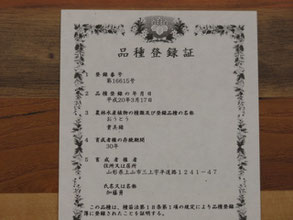 品種登録証
1 登録番号
第16615号
2 品種登録の年月日
平成20年3月17日
3 農林水産植物の種類及び登録品種の名称
おうとう
4 育成者権の存続期間
30年
5 育成者権者
住所又は居所
山形県上山市三上字平道路1241-47
氏名又は名称
加藤勇
この品種は、種苗法第18条第1項の規定により品種登録
簿に登録されたことを証明する。